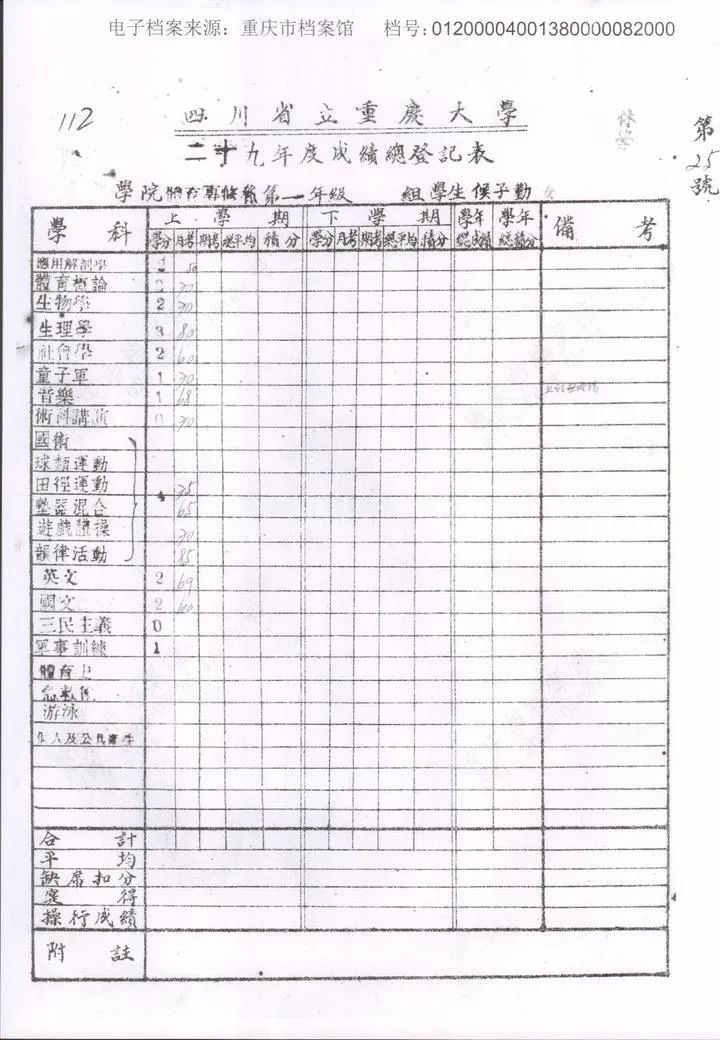 电子档案来源：重庆市档案馆 档号：01200004001380000082000
112
四川省立重慶大學
休學
第25號
二十九年度成績總登記表
學院體育專修科第一年級 組學生侯子勤 女
學科 上學期 下學期 學年總成績 學年總積分 備考
學分 月考 期考 總平均 積分 學分 月考 期考 總平均 積分
應用解剖學 2 50
體育概論 2 70
生物學 2 70
生理學 3 80
社會學 2 60
童子軍 1 70
音樂 1 68
術科講演 0 70
國術
球類運動
田徑運動 4 75
墊器混合 65
遊戲體操 70
韻律活動 85
英文 2 69
國文 2 60
三民主義 0
軍事訓練 1
體育史
游泳
個人及公共衛生
合計
平均
缺席扣分
實得
操行成績
附註